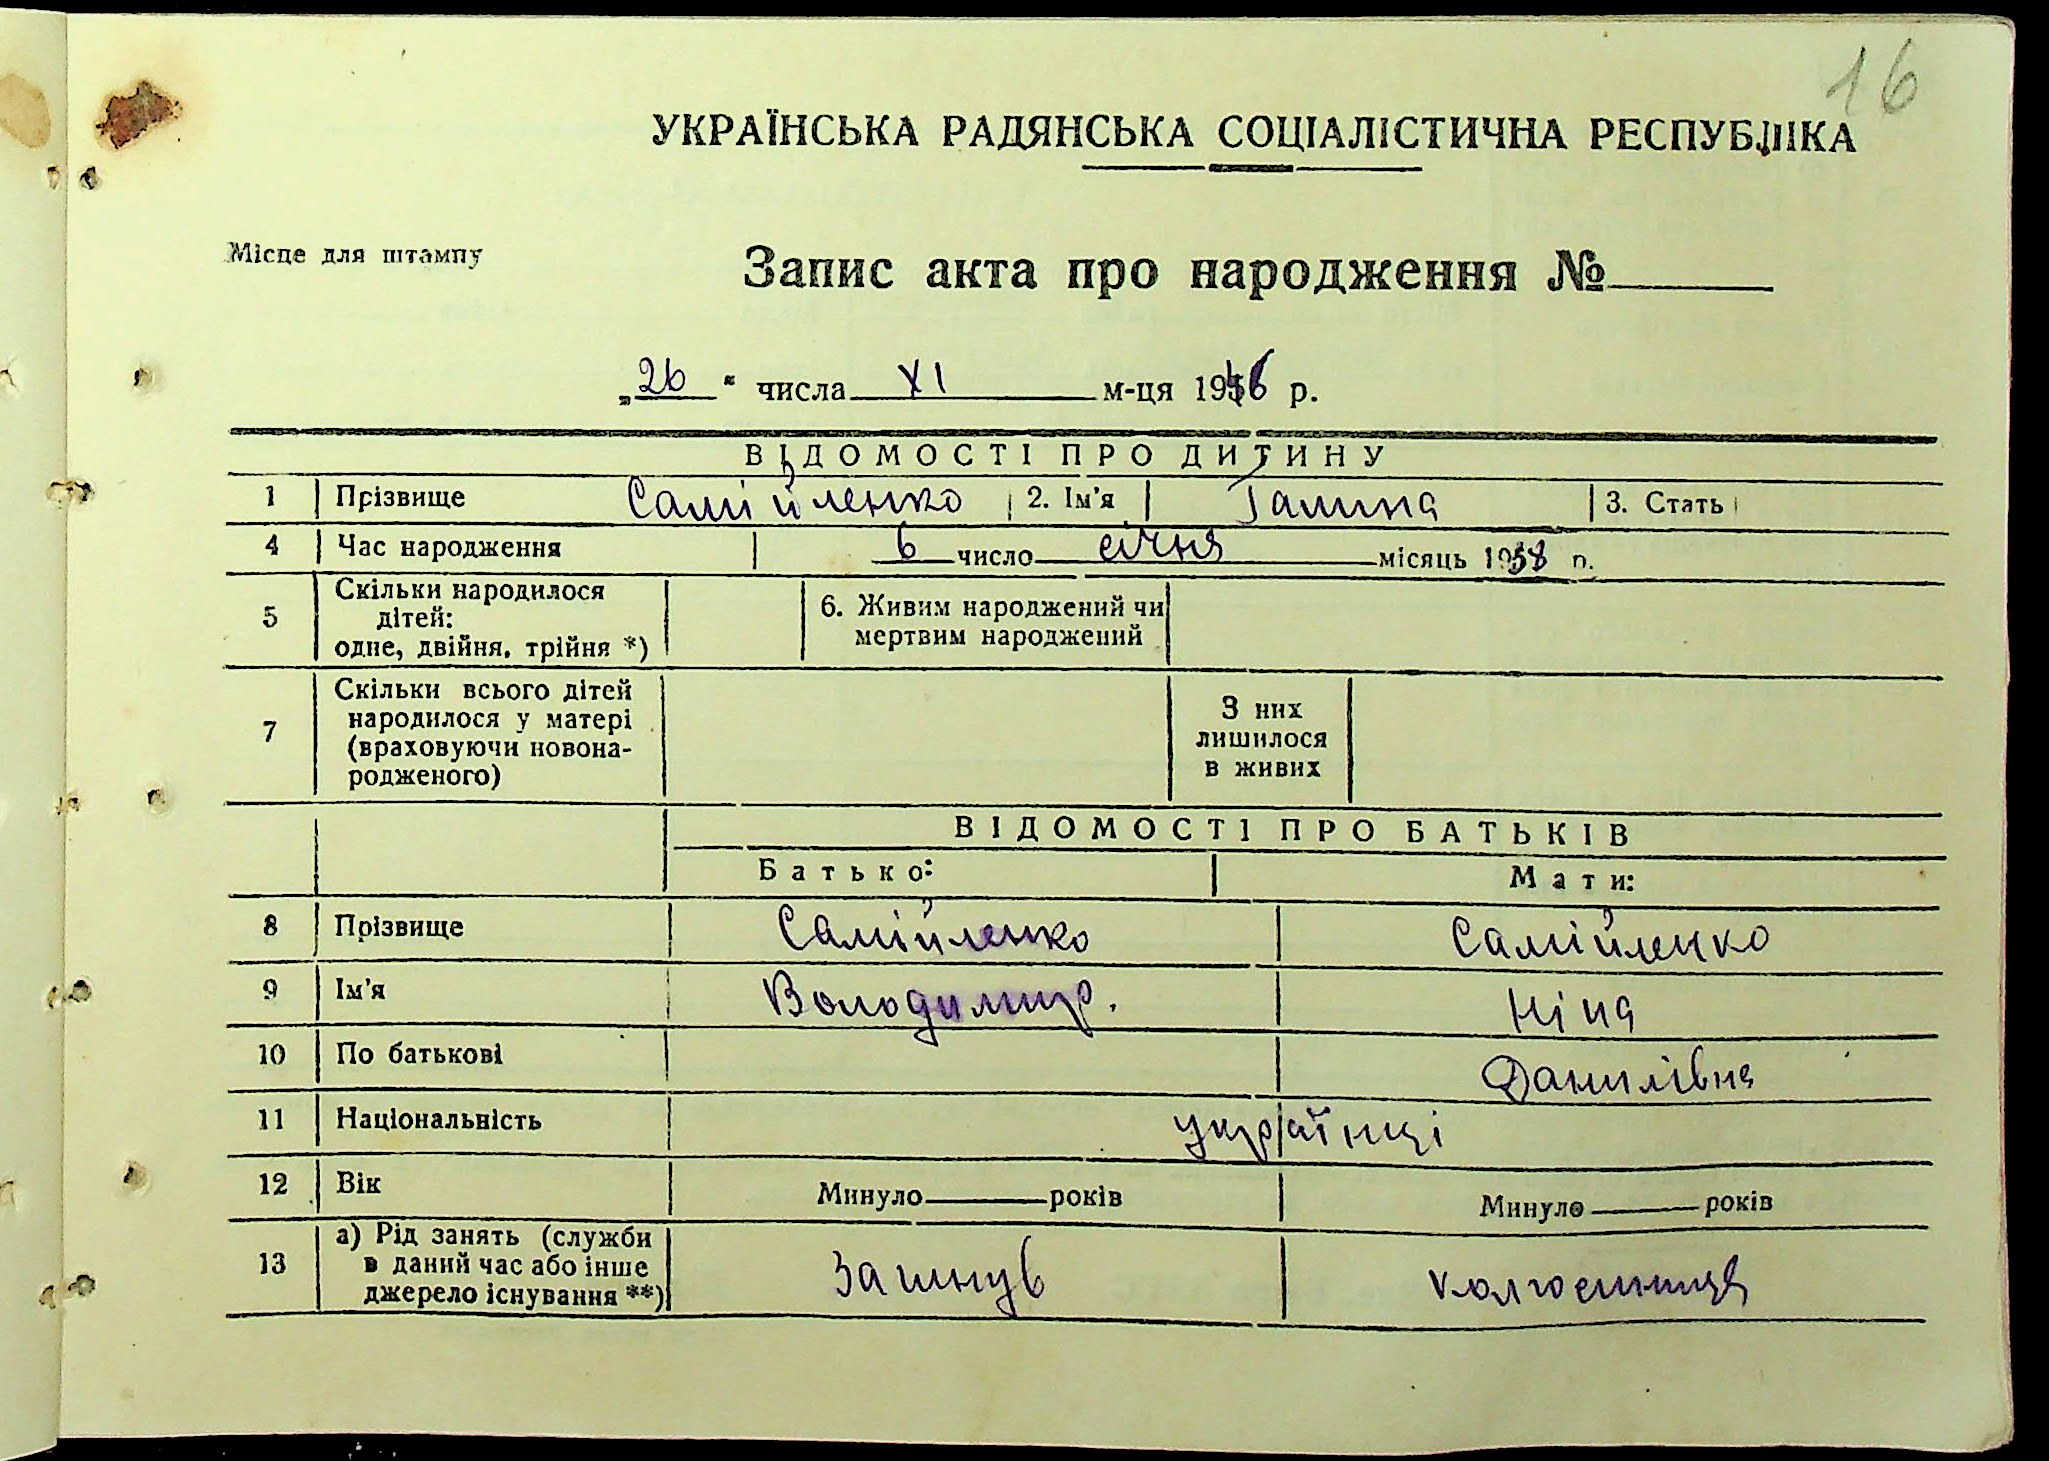 16
УКРАЇНСЬКА РАДЯНСЬКА СОЦІАЛІСТИЧНА РЕСПУБЛІКА
Місце для штампу
Запис акта про народження №
„26" числа XI м-ця 1946 р.
ВІДОМОСТІ ПРО ДИТИНУ
1 Прізвище Самійленко 2. Ім'я Галина 3. Стать
4 Час народження 6 число січня місяць 1938 р.
5 Скільки народилося дітей: одне, двійня, трійня *) 6. Живим народжений чи мертвим народжений
7 Скільки всього дітей народилося у матері (враховуючи новона-родженого) З них лишилося в живих
ВІДОМОСТІ ПРО БАТЬКІВ
Батько: Мати:
8 Прізвище Самійленко Самійленко
9 Ім'я Володимир. Ніна
10 По батькові Данилівна
11 Національність українці
12 Вік Минуло років Минуло років
13 а) Рід занять (служби в даний час або інше джерело існування **) Загинув колгоспниця